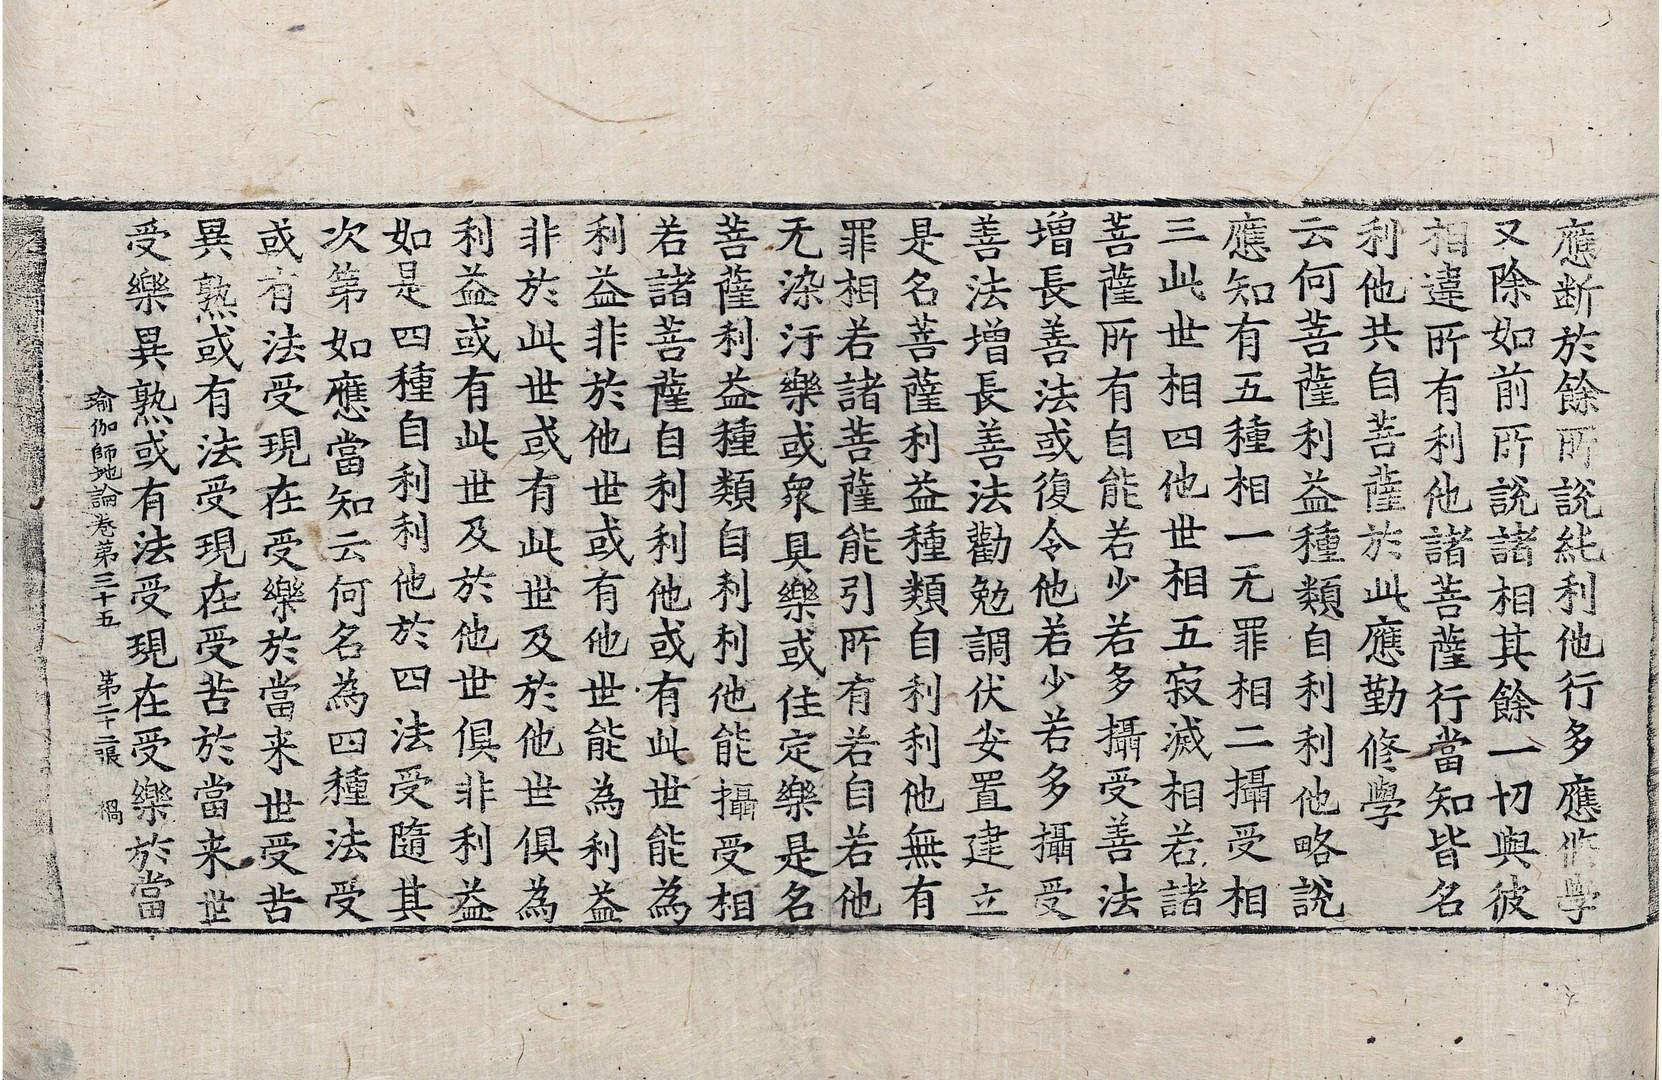 應断於餘所說純利他行多應修學
又除如前所說諸相其餘一切與彼
相違所有利他諸菩薩行當知皆名
利他共自菩薩於此應勤修學
云何菩薩利益種類自利利他略說
應知有五種相一无罪相二攝受相
三此世相四他世相五寂滅相若諸
菩薩所有自能若少若多攝受善法
增長善法或復令他若少若多攝受
善法增長善法勸勉調伏安置建立
是名菩薩利益種類自利利他無有
罪相若諸菩薩能引所有若自若他
无染汙樂或衆具樂或住定樂是名
菩薩利益種類自利利他能攝受相
若諸菩薩自利利他或有此世能為
利益非於他世或有他世能為利益
非於此世或有此世及於他世俱為
利益或有此世及於他世俱非利益
如是四種自利利他於四法受隨其
次第如應當知云何名為四種法受
或有法受現在受樂於當来世受苦
異熟或有法受現在受苦於當来世
受樂異熟或有法受現在受樂於當
瑜伽師地論卷第三十五　第二十二張　禍